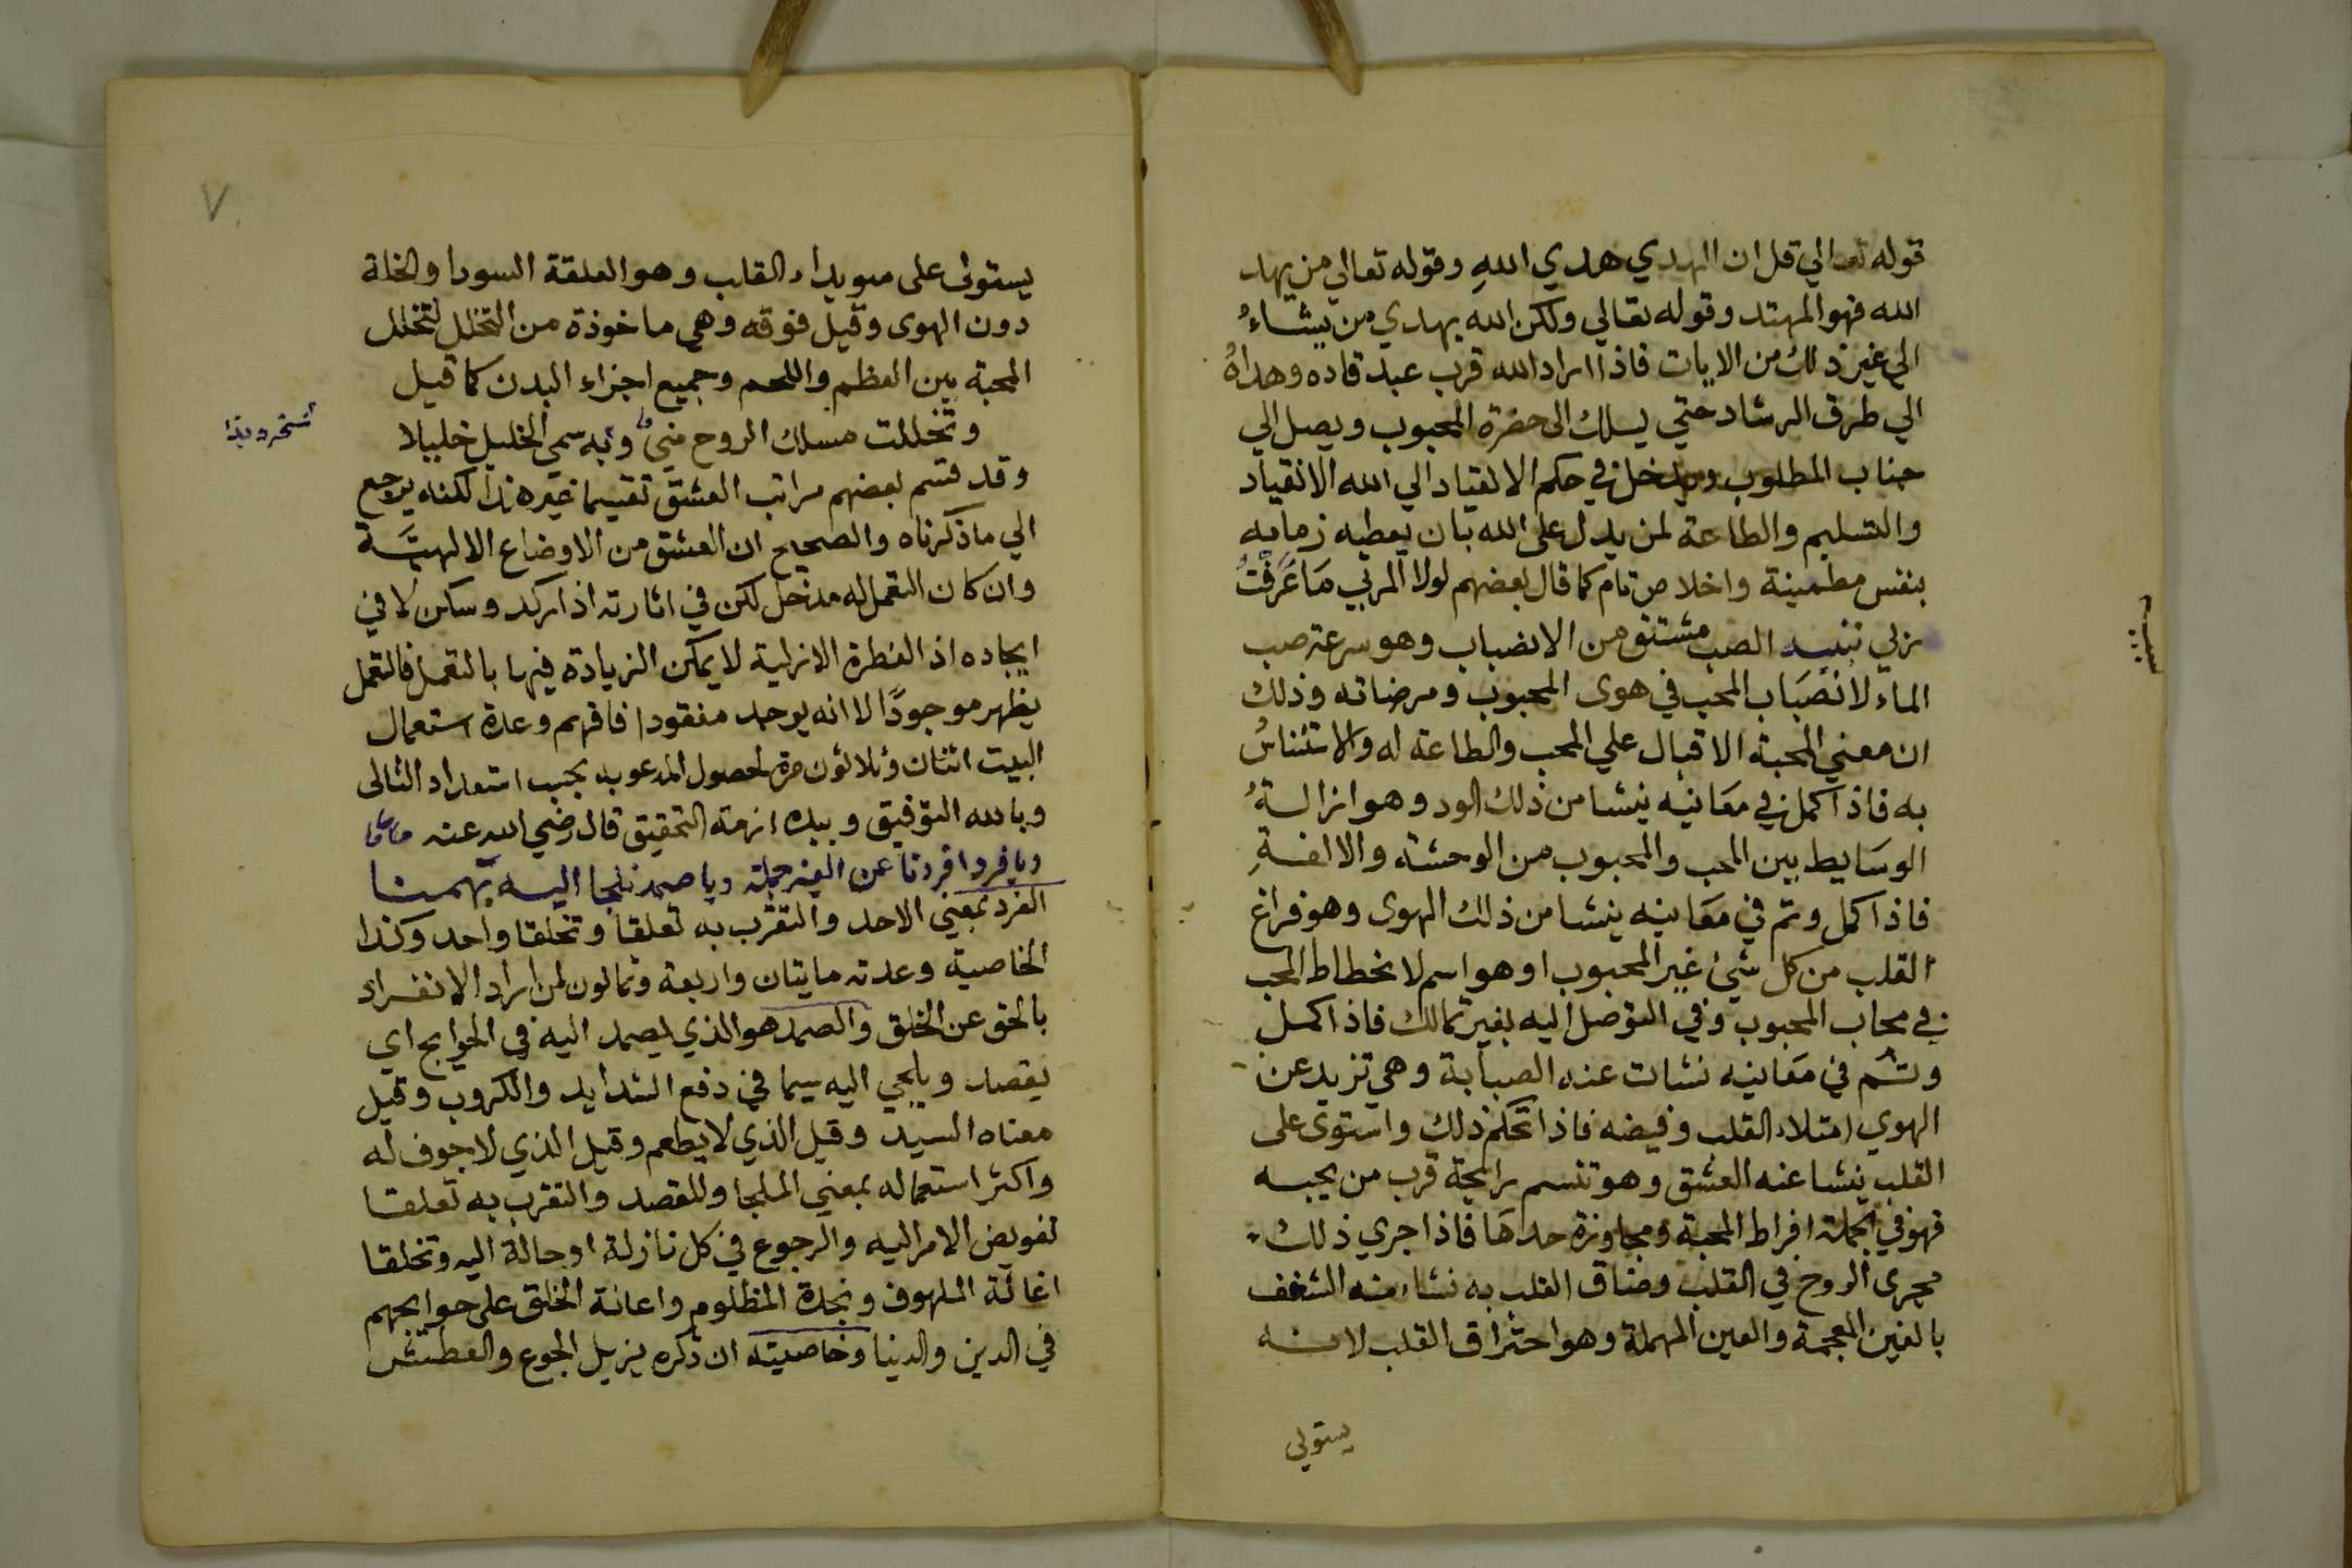 قوله تعالي قل ان الهدي هدي اللهِ وقوله تعالي من يهد
الله فهو المهتد وقوله تعالي ولكن الله يهدي من يشاءُ
الي غير ذلك من الايات فاذا اراد الله قرب عبد قاده وهداهُ
الي طرق الرشاد حتي يسلك الى حضرة المحبوب ويصل الي
جناب المطلوب ويدخل في حكم الانقياد الي الله الانقياد
والتسليم والطاعة لمن يدل على الله بان يعطيه زمامه
بنفس مطمينة واخلاص تام كما قال بعضهم لولا المربي مَا عَرَفْتُ
ربي تنبيه الصب مشتق من الانصباب وهو سرعة صب
الماء لانصبَاب المحب في هوى المحبوب ومرضاته وذلك
ان معني المحبة الاقبال علي المحب والطاعة له والاستئناسُ
به فاذا كمل في معَانيه ينشا من ذلك الود وهو ازالةُ
الوسَايط بين المحب والمحبوب من الوحشة والالفةِ
فاذا كمل وتم في معَانيه ينشا من ذلك الهوى وهو فراغ
القلب من كل شئ غير المحبوب او هو اسم لانحطاط المحب
في محاب المحبوب وفي التوصل اليه بغير تمالك فاذا كمل
وتم في معَانيه نشات عنه الصبابة وهي تزيد عن
الهوي امتلاء القلب وفيضه فاذا تحكم ذلك واستوى على
القلب ينشا عنه العشق وهو تنسم رايحة قرب من يحبه
فهو في الجملة افراط المحبة ومجاوزة حدهَا فاذا جري ذلك
مجرى الروح في القلب وضاق القلب به نشاء منه الشغف
بالغين المعجمة والعين المهملة وهو احتراق القلب لانه
يستولي
يستولى على سويداء القلب وهو العلقة السودا والخلة
دون الهوى وقيل فوقه وهي ماخوذة من التخلل لتخلل
المحبة بين العظم واللحم وجميع اجزاء البدن كما قيل
وتخللت مسلك الروح مني وبه سمي الخليل خليلا
وقد قسم بعضهم مراتب العشق تقسيما غير هذا لكنه يرجع
الي ما ذكرناه والصحيح ان العشق من الاوضاع الالهيَّة
وان كان التعمل له مدخل لكن في اثارته اذا ركد وسكن لا في
ايجاده اذ الفطرة الازلية لا يمكن الزيادة فيها بالتعمل فالتعمل
يظهر موجودًا لا انه يوجد مفقودا فافهم وعدة استعمال
البيت اثنان وثلاثون مرة لحصول المدعو به بحسب استعداد التالى
وبالله التوفيق وبيده ازمة التحقيق قال رضي الله عنه
ويا فردا فردنا عن الغير جملة ويا صمد نلجا اليه بهمنا
الفرد بمعني الاحد والتقرب به تعلقا وتخلقا واحد وكذا
الخاصية وعدته مايتان واربعة وثمانون لمن اراد الانفراد
بالحق عن الخلق والصمد هو الذي يصمد اليه في الحوايج اي
يقصد ويلجي اليه سيما في دفع الشدايد والكروب وقيل
معناه السيد وقيل الذي لا يطعم وقيل الذي لا جوف له
واكثر استعماله بمعني الملجا والمقصد والتقرب به تعلقا
تفويض الامر اليه والرجوع في كل نازلة او حالة اليه وتخلقا
اغاثة الملهوف ونجدة المظلوم واعانة الخلق على حوايجهم
في الدين والدنيا وخاصيته ان ذكره يزيل الجوع والعطش
٧